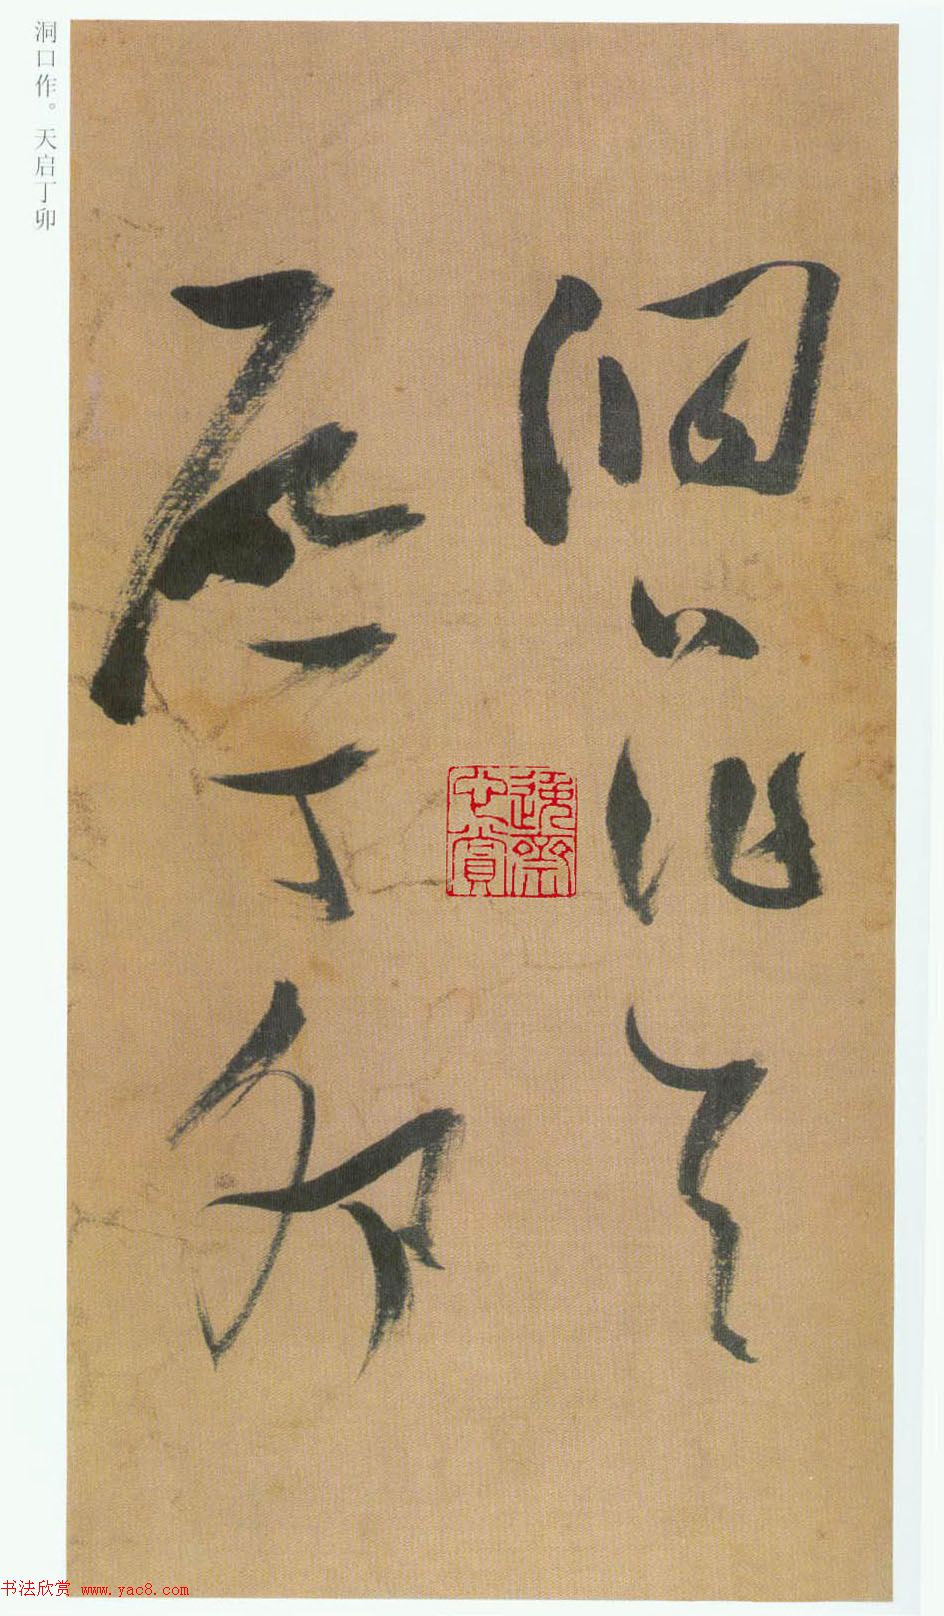 洞口作。天启丁卯
洞口作天
启丁卯
逸斋
心赏
书法欣赏 www.yac8.com